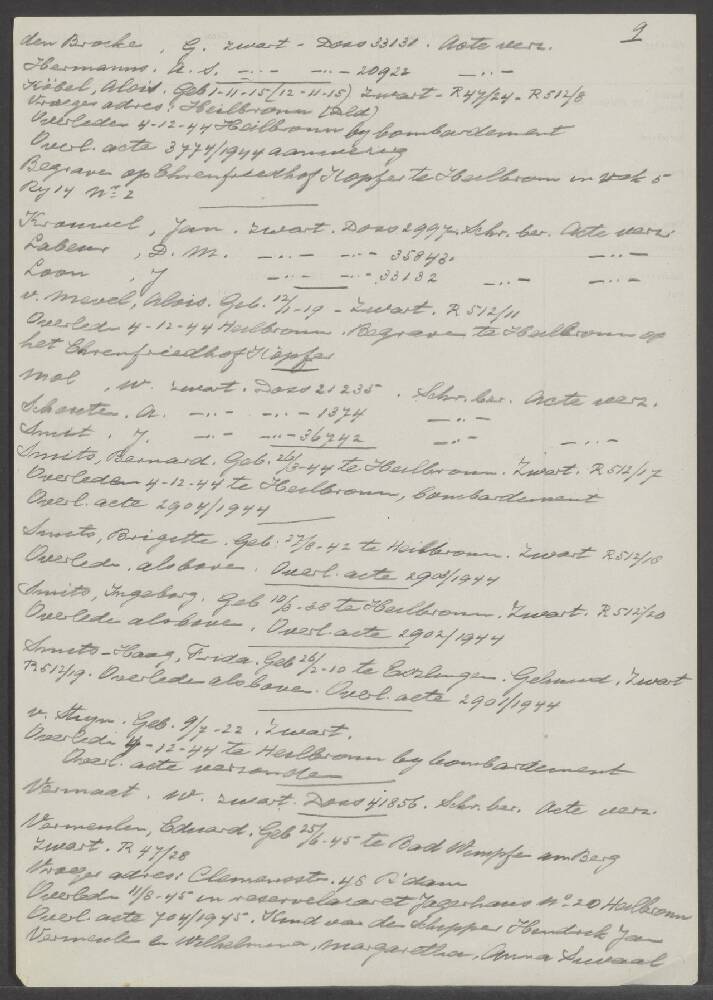 9
den Broeke, G. zwart - Doss 33131. Acte verz.
Hermanns. A. S. -..- -..- 20922 -..-
Köbel, Alois. Geb 1-11-15 (12-11-15) Zwart - R 47/24 - R 512/8
Vroeger adres: Heilbronn (Dld)
Overleden 4-12-44 Heilbronn by bombardement
Overl. acte 3774/1944 aanwezig
Begraven op Ehrenfriedhof Köpfer te Heilbronn in vak 5
Ry 14 No 2
Jan. zwart. Doss 2997. Schr. ber. Acte verz.
Labeur, D. M. -..- -..- 35843. -..-
Loon, J -..- -..- 33132 -..- -..-
v. Mevel, Alois. Geb. 12/1-19 - Zwart. R 512/11
Overleden 4-12-44 Heilbronn. Begraven te Heilbronn op
het Ehrenfriedhof Köpfer
Mol, W. zwart. Doss 21235. Schr. ber. Acte verz.
Schouten. A. -..- -..- 1374 -..-
Smit. J. -..- -..- 36742 -..- -..-
Smits, Bernard. Geb. 26/3-44 te Heilbronn. Zwart. R 512/17
Overleden 4-12-44 te Heilbronn, bombardement
Overl. acte 2904/1944
Smits, Brigitte. Geb. 27/8-42 te Heilbronn. Zwart R 512/18
Overleden. alsboven. Overl. acte 2903/1944
Smits, Ingeborg. Geb 10/3-38 te Heilbronn. Zwart. R 512/20
Overleden alsboven. Overl. acte 2902/1944
Smits-Haag, Frida. Geb 26/2-10 te Gehuwd. Zwart
R 512/19. Overleden alsboven. Overl. acte 2901/1944
v. Geb. 9/7-22. Zwart.
Overleden 4-12-44 te Heilbronn by bombardement
Overl. acte verzonden
Vermaat. W. zwart. Doss 41856. Schr. ber. Acte verz.
Vermeulen, Eduard. Geb 25/6-45 te Bad Wimpfen am Berg
Zwart. R 47/28
Vroeger adres: Clemensstr. 48 R'dam
Overleden 11/8-45 in reservelazaret Jägerhaus No 20 Heilbronn
Overl. acte 704/1945. Kind van den schipper Hendrik Jan
Vermeulen en Wilhelmina, Margaretha, Anna